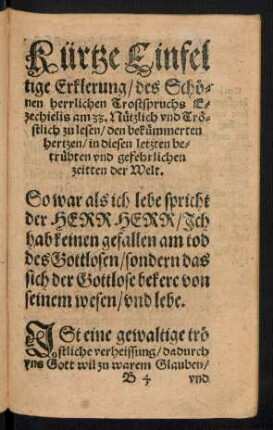 Kürtze Einfel
tige Erklerung/ des Schö-
nen herrlichen Trostspruchs E-
zechielis am 33. Nützlich vnd Trö-
stlich zu lesen/ den bekümmerten
hertzen/ in diesen letzten be-
trübten vnd gefehrlichen
zeitten der Welt.
So war als ich lebe spricht
der HERR HERR/ Ich
hab keinen gefallen am tod
des Gottlosen/ sondern das
sich der Gottlose bekere von
seinem wesen/ vnd lebe.
ISt eine gewaltige trö
stliche verheissung/ dadurch
vns Gott wil zu warem Glauben/
B 4 vnd